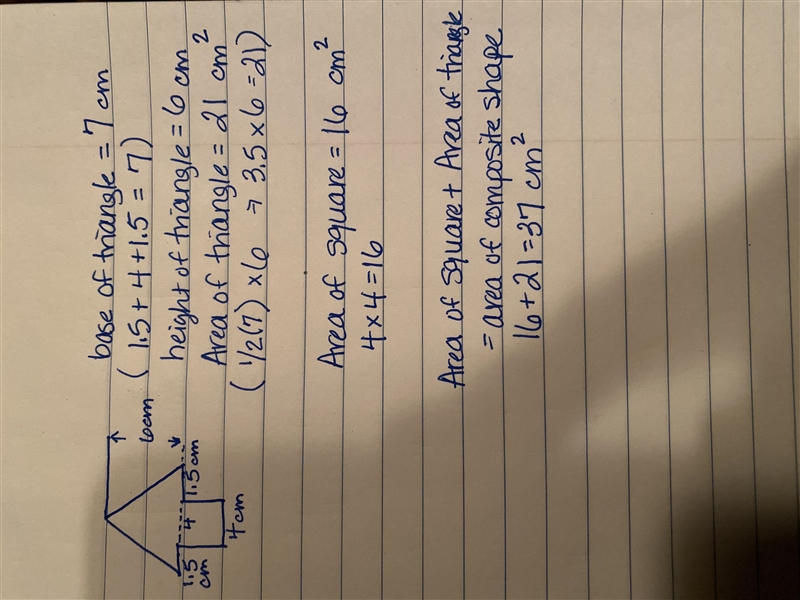 6cm
1.5
cm
4
1.5cm
4cm
base of triangle = 7 cm
( 1.5 + 4 + 1.5 = 7 )
height of triangle = 6 cm
Area of triangle = 21 cm²
( 1/2(7) × 6 → 3.5 × 6 = 21 )
Area of square = 16 cm²
4 × 4 = 16
Area of square + Area of triangle
= area of composite shape
16 + 21 = 37 cm²